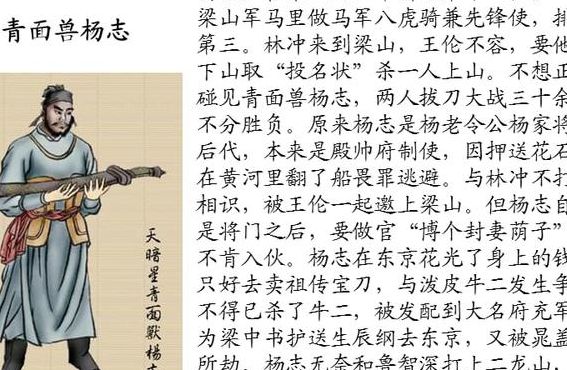 青面兽杨志
天暗星青面獸楊志
梁山军马里做马军八虎骑兼先锋使，排
第三。林冲来到梁山，王伦不容，要他
下山取“投名状”杀一人上山。不想正
碰见青面兽杨志，两人拔刀大战三十余
不分胜负。原来杨志是杨老令公杨家将
后代，本来是殿帅府制使，因押送花石
在黄河里翻了船畏罪逃避。与林冲不打
相识，被王伦一起邀上梁山。但杨志自
是将门之后，要做官“博个封妻荫子”
不肯入伙。杨志在东京花光了身上的钱
只好去卖祖传宝刀，与泼皮牛二发生争
不得已杀了牛二，被发配到大名府充军
为梁中书护送生辰纲去东京，又被晁盖
所劫。杨志无奈和鲁智深打上二龙山，